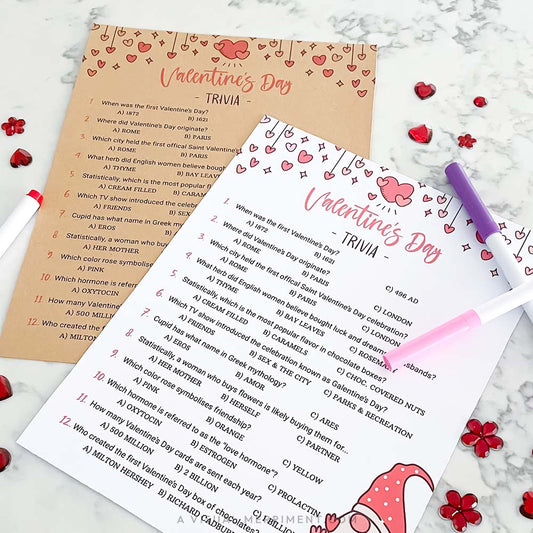 Valentine's Day
- TRIVIA -
1. When was the first Valentine's Day?
A) 1872 B) 1621
2. Where did Valentine's Day originate?
A) ROME B) PARIS
3. Which city held the first offical Saint Valentine
A) ROME B) PARIS
4. What herb did English women believe bought
A) THYME B) BAY LEAVES
5. Statistically, which is the most popular flavor
A) CREAM FILLED B) CARAMELS
6. Which TV show introduced the celebration
A) FRIENDS B) SEX
7. Cupid has what name in Greek
A) EROS
8. Statistically, a woman who buys
A) HER MOTHER
9. Which color rose symbolises
A) PINK
10. Which hormone is referred
A) OXYTOCIN
11. How many Valentine
A) 500 MILLION
12. Who created the first
A) MILTON
Valentine's Day
- TRIVIA -
1. When was the first Valentine's Day?
A) 1872 B) 1621 C) 496 AD
2. Where did Valentine's Day originate?
A) ROME B) PARIS C) LONDON
3. Which city held the first offical Saint Valentine's Day celebration?
A) ROME B) PARIS C) LONDON
4. What herb did English women believe bought luck and dreams husbands?
A) THYME B) BAY LEAVES C) ROSEMARY
5. Statistically, which is the most popular flavor in chocolate boxes?
A) CREAM FILLED B) CARAMELS C) CHOC. COVERED NUTS
6. Which TV show introduced the celebration known as Galentine's Day?
A) FRIENDS B) SEX & THE CITY C) PARKS & RECREATION
7. Cupid has what name in Greek mythology?
A) EROS B) AMOR C) ARES
8. Statistically, a woman who buys flowers is likely buying them for...
A) HER MOTHER B) HERSELF C) PARTNER
9. Which color rose symbolises friendship?
A) PINK B) ORANGE C) YELLOW
10. Which hormone is referred to as the "love hormone"?
A) OXYTOCIN B) ESTROGEN C) PROLACTIN
11. How many Valentine's Day cards are sent each year?
A) 500 MILLION B) 2 BILLION C)
12. Who created the first Valentine's Day box of chocolates?
A) MILTON HERSHEY B) RICHARD CADBURY